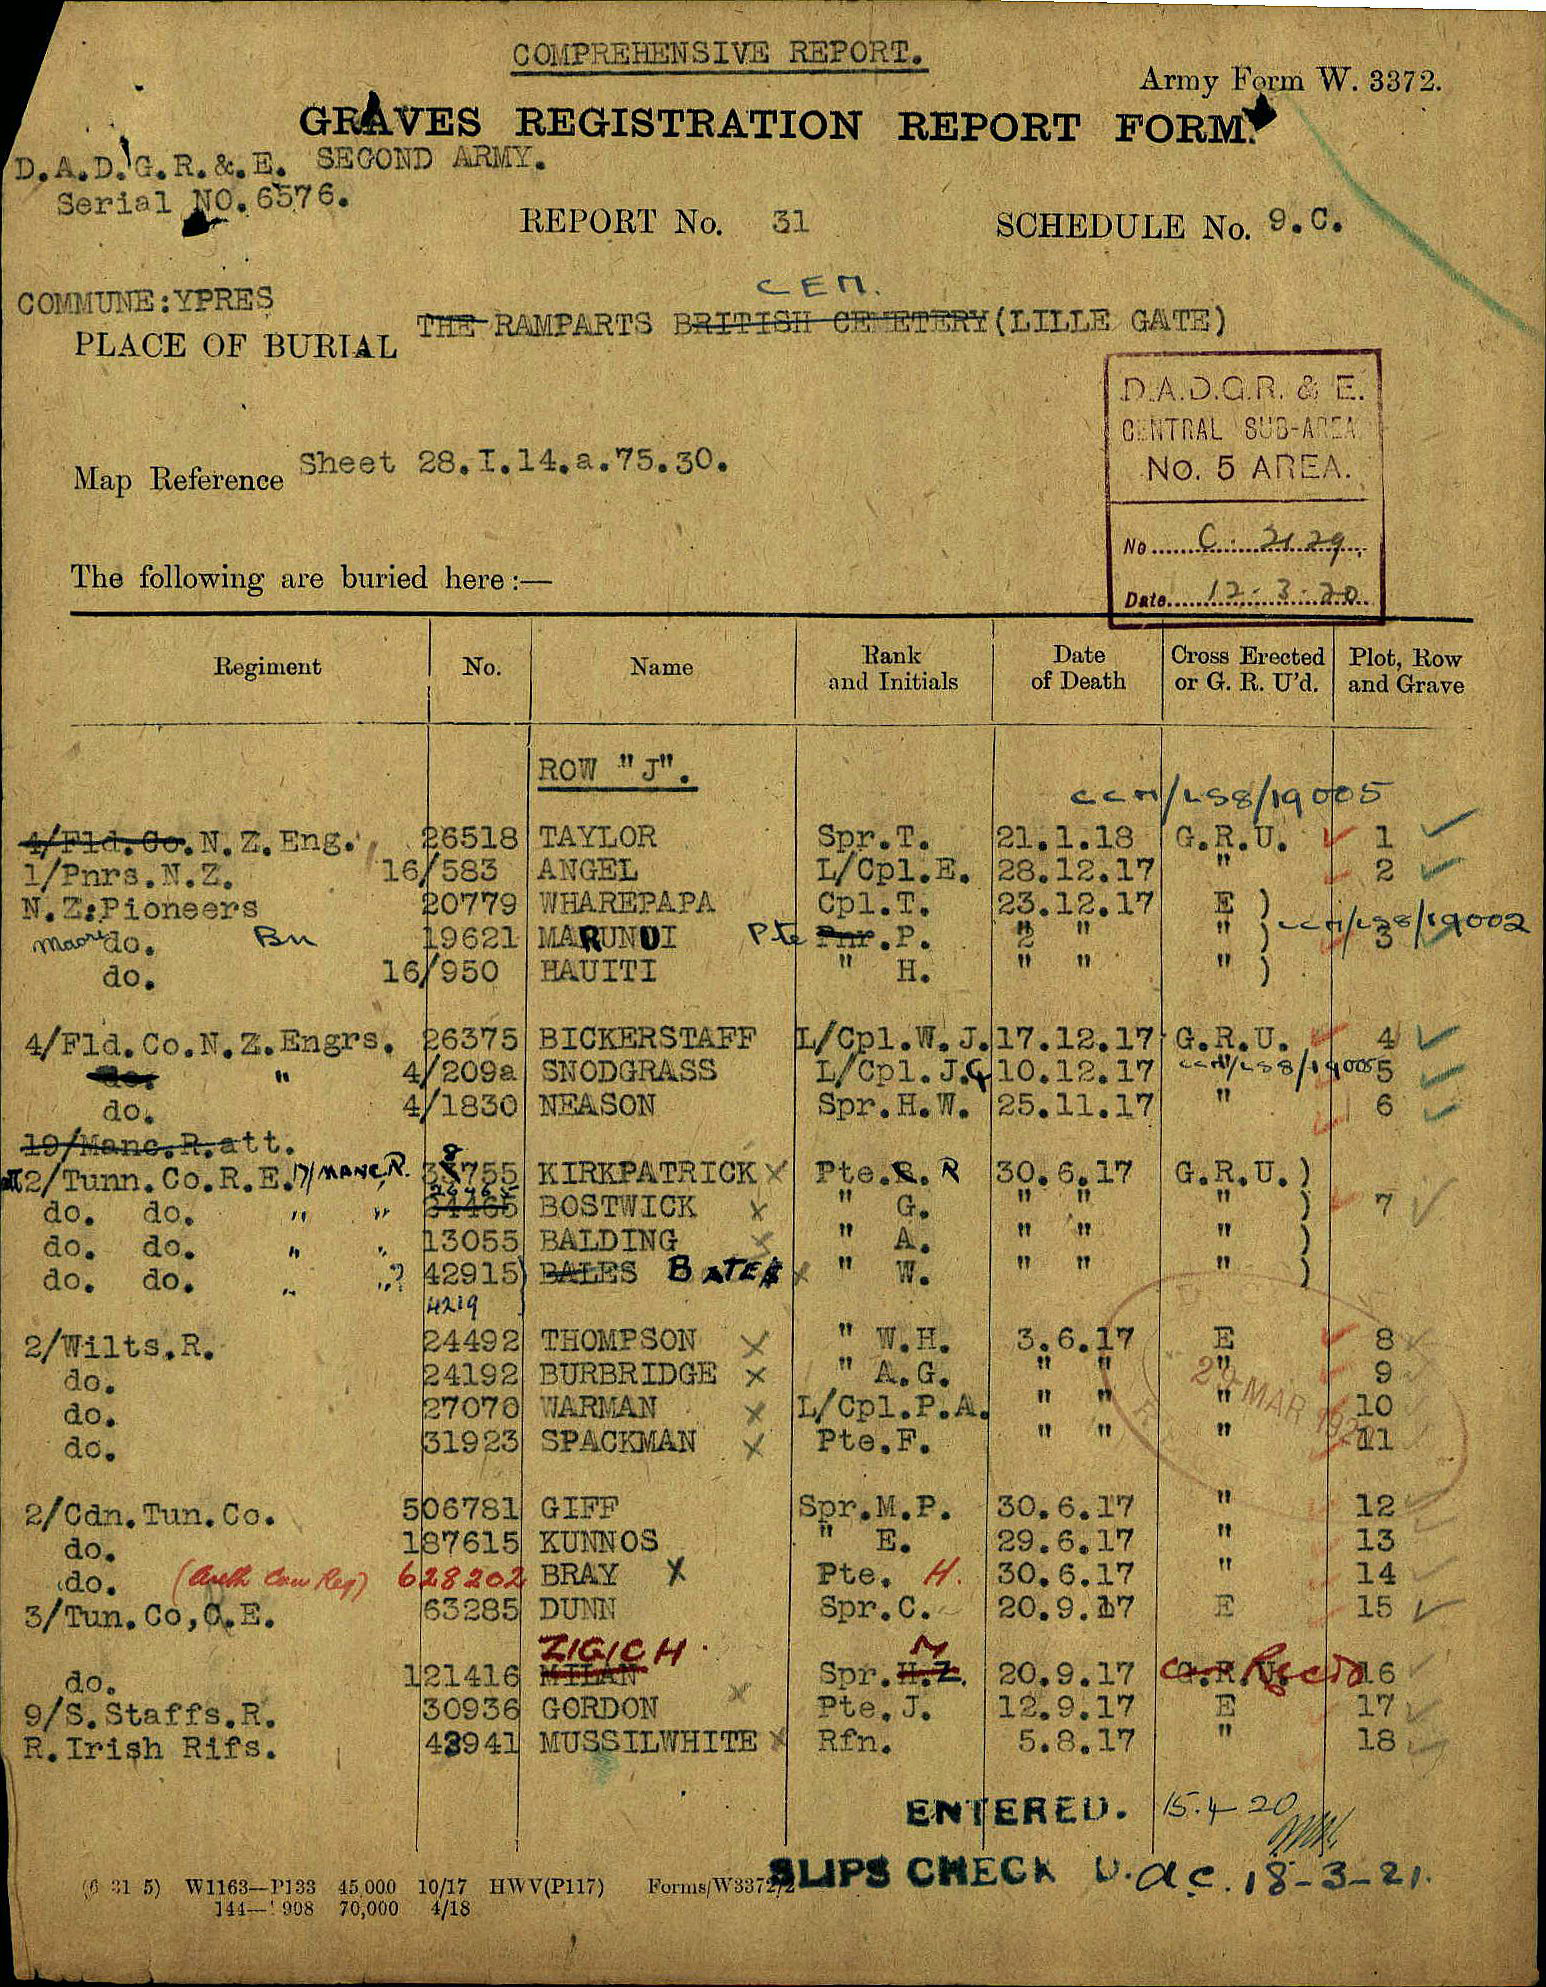 COMPREHENSIVE REPORT.
Army Form W. 3372.
GRAVES REGISTRATION REPORT FORM.
D.A.D.G.R.&.E. SECOND ARMY.
Serial NO.6576.
REPORT No. 31 SCHEDULE No. 9.C.
CEM.
COMMUNE:YPRES
PLACE OF BURIAL THE RAMPARTS BRITISH CEMETERY (LILLE GATE)
D.A.D.G.R. & E.
CENTRAL SUB-AREA
No. 5 AREA.
Map Reference Sheet 28.I.14.a.75.30.
No C. 2129.
Date 12-3-20
The following are buried here:—
Regiment No. Name Rank and Initials Date of Death Cross Erected or G. R. U'd. Plot, Row and Grave
ROW "J".
CCM/LS8/19005
4/Fld.Co.N.Z.Eng. 26518 TAYLOR Spr.T. 21.1.18 G.R.U. 1
1/Pnrs.N.Z. 16/583 ANGEL L/Cpl.E. 28.12.17 " 2
N.Z.Pioneers 20779 WHAREPAPA Cpl.T. 23.12.17 E )
Maori do. Bn 19621 MARUNUI Pte Pnr.P. " " " ) CCM/LS8/19002 3
do. 16/950 HAUITI " H. " " " )
4/Fld.Co.N.Z.Engrs. 26375 BICKERSTAFF L/Cpl.W.J. 17.12.17 G.R.U. 4
do. " 4/209a SNODGRASS L/Cpl.J.G 10.12.17 CCM/LS8/19005 5
do. 4/1830 NEASON Spr.H.W. 25.11.17 " 6
19/Manc.R.att.
2/Tunn.Co.R.E. 17/MANC.R. 8 33755 KIRKPATRICK X Pte.R. R 30.6.17 G.R.U. )
do. do. " " 26465 24465 BOSTWICK X " G. " " " ) 7
do. do. " " 13055 BALDING X " A. " " " )
do. do. " "? 42915) BALES BATES X " W. " " " )
4219
2/Wilts.R. 24492 THOMPSON X " W.H. 3.6.17 E 8
do. 24192 BURBRIDGE X " A.G. " " " 9
do. 27070 WARMAN X L/Cpl.P.A. " " " 10
do. 31923 SPACKMAN X Pte.F. " " " 11
MAR
2/Cdn.Tun.Co. 506781 GIFF Spr.M.P. 30.6.17 " 12
do. 187615 KUNNOS " E. 29.6.17 " 13
do. (Auth Can Reg) 628202 BRAY X Pte. H. 30.6.17 " 14
3/Tun.Co,C.E. 63285 DUNN Spr.C. 20.9.17 E 15
ZIGICH. M
do. 121416 MILAN Spr.H.Z. 20.9.17 G.R.U. 16
9/S.Staffs.R. 30936 GORDON X Pte.J. 12.9.17 E 17
R.Irish Rifs. 43941 MUSSILWHITE X Rfn. 5.8.17 " 18
ENTERED. 15.4.20
SLIPS CHECK D. a.c. 18-3-21.
(6 31 5) W1163—P133 45,000 10/17 HWV(P117) Forms/W3372/2
144— 908 70,000 4/18